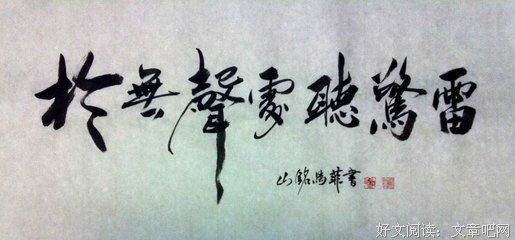 於無聲處聽驚雷
山銘馮菲書
好文阅读：文章吧网